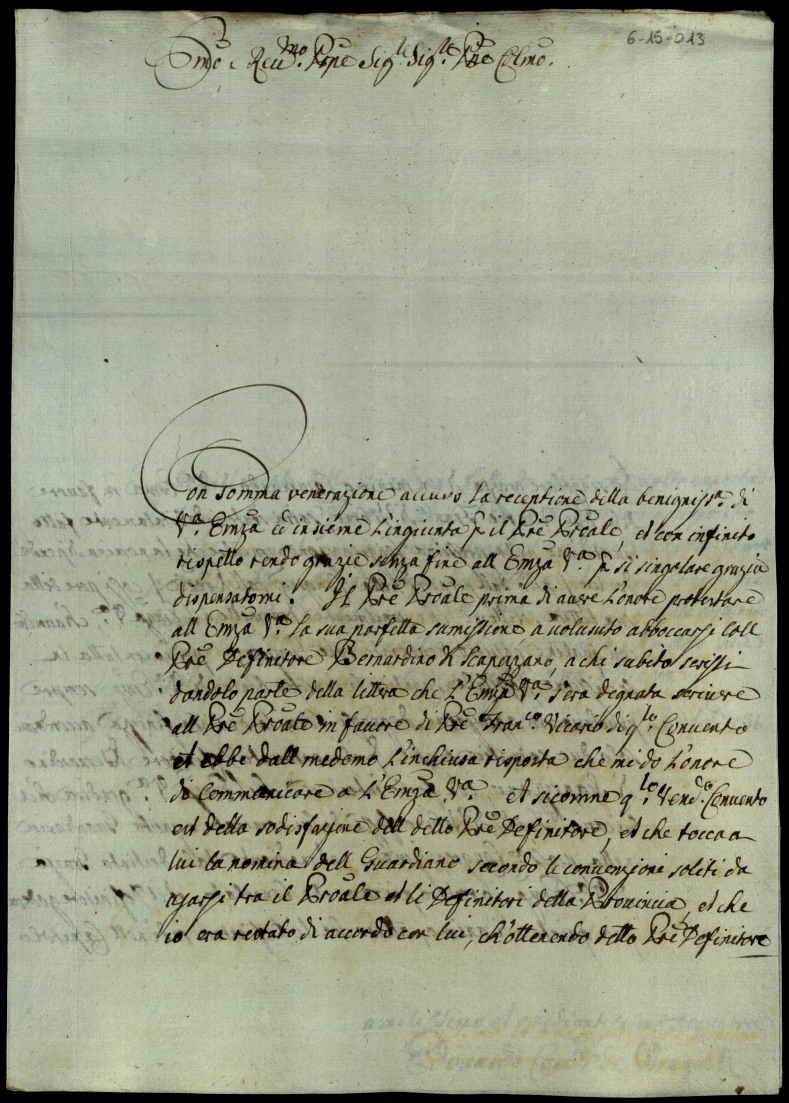 6-15-013
Emo e Reumo. Prpe Sigre. Sigre. Pne Colmo.
Con somma venerazione accuso la receptione della benignissa. di
Va. Emza ed insieme l'ingiunta p il Pre Proale, et con infinito
rispetto rendo grazie senza fine all Emza Va. p si singolare grazia
dispensatomi. Il Pre Proale prima di auere l'onore protestare
all Emza Va. la sua parfetta sumissione a uolusuto abboccarsi coll
Pre Definitore Bernardino di Scapezzano, a chi subito scrissi
dandolo parte della littera che L'Emza Va. s'era degnata scriuere
all Pre Proale in fauore di Pre Franco. Vicario di qto. Conuento
et ebbe dall medemo l'inchiusa risposta che mi do l'onore
di Communicare a L'Emza Va. et sicomme qto. Vendo. Conuento
est della sodisfazine dell detto Pre Definitore, et che tocca a
lui la nomina dell Guardiano secondo le conuenzioni soliti da
farsi tra il Proale et li Definitori della Prouincia, et che
io era restato di accordo con lui, ch'ottenendo detto Pre Definitore